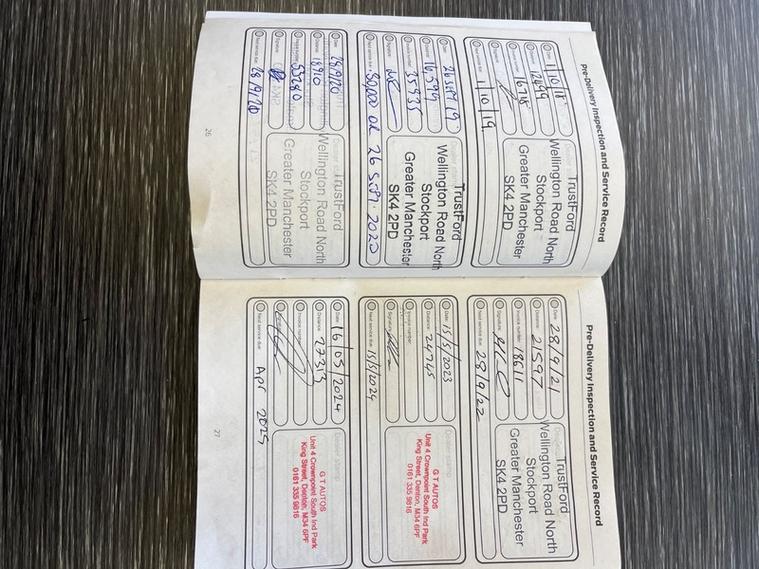 Pre-Delivery Inspection and Service Record
Date 1/10/18
Distance 12499
16718
1/10/19
TrustFord
Wellington Road North
Stockport
Greater Manchester
SK4 2PD
Date 26 Sept 19
16,599
35935
Next service due 30,000 or 26 Sept. 2020
TrustFord
Wellington Road North
Stockport
Greater Manchester
SK4 2PD
Date 28/9/20
Distance 18910
53280
Next service due 28/9/20
TrustFord
Wellington Road North
Stockport
Greater Manchester
SK4 2PD
26
Pre-Delivery Inspection and Service Record
Date 28/9/21
Distance 21597
Invoice number 18611
Signature
Next service due 28/9/22
TrustFord
Wellington Road North
Stockport
Greater Manchester
SK4 2PD
Date 15/5/2023
Distance 24745
Invoice number
Signature
Next service due 15/5/2024
G T AUTOS
Unit 4 Crownpoint South Ind Park
King Street, Denton, M34 6PF
0161 335 9816
Date 16/05/2024
Distance 27313
Invoice number
Next service due Apr 2025
G T AUTOS
Unit 4 Crownpoint South Ind Park
King Street, Denton, M34 6PF
0161 335 9816
27